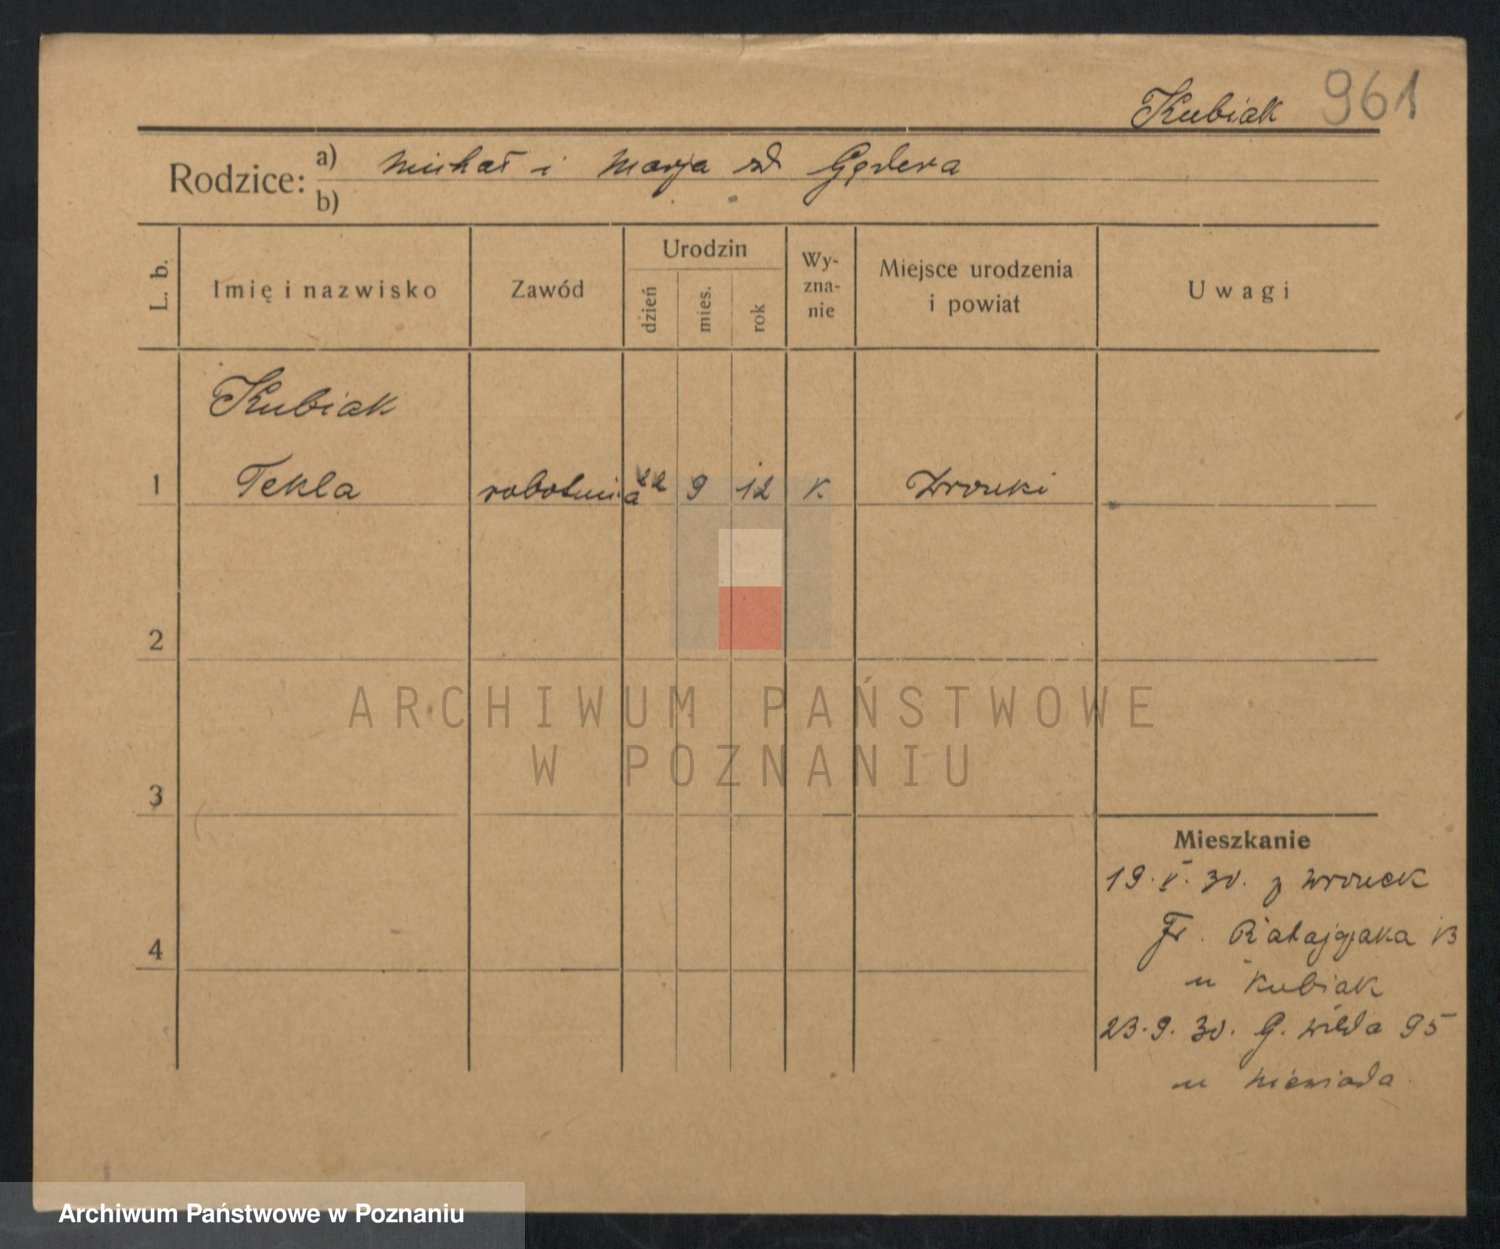 Kubiak 961
Rodzice:
a) Michał i Marja zd Gędera
b)
L. b.
Imię i nazwisko
Zawód
Urodzin
dzień
mies.
rok
Wy-
zna-
nie
Miejsce urodzenia
i powiat
Uwagi
Kubiak
1 Tekla robotnica 22 9 12 K Wronki
2
3
4
ARCHIWUM PAŃSTWOWE
W POZNANIU
Mieszkanie
19. V. 30. z Wronek
Fr. Ratajczaka 13
u Kubiak
23.9.30. G. Wilda 95
u Niewiada
Archiwum Państwowe w Poznaniu